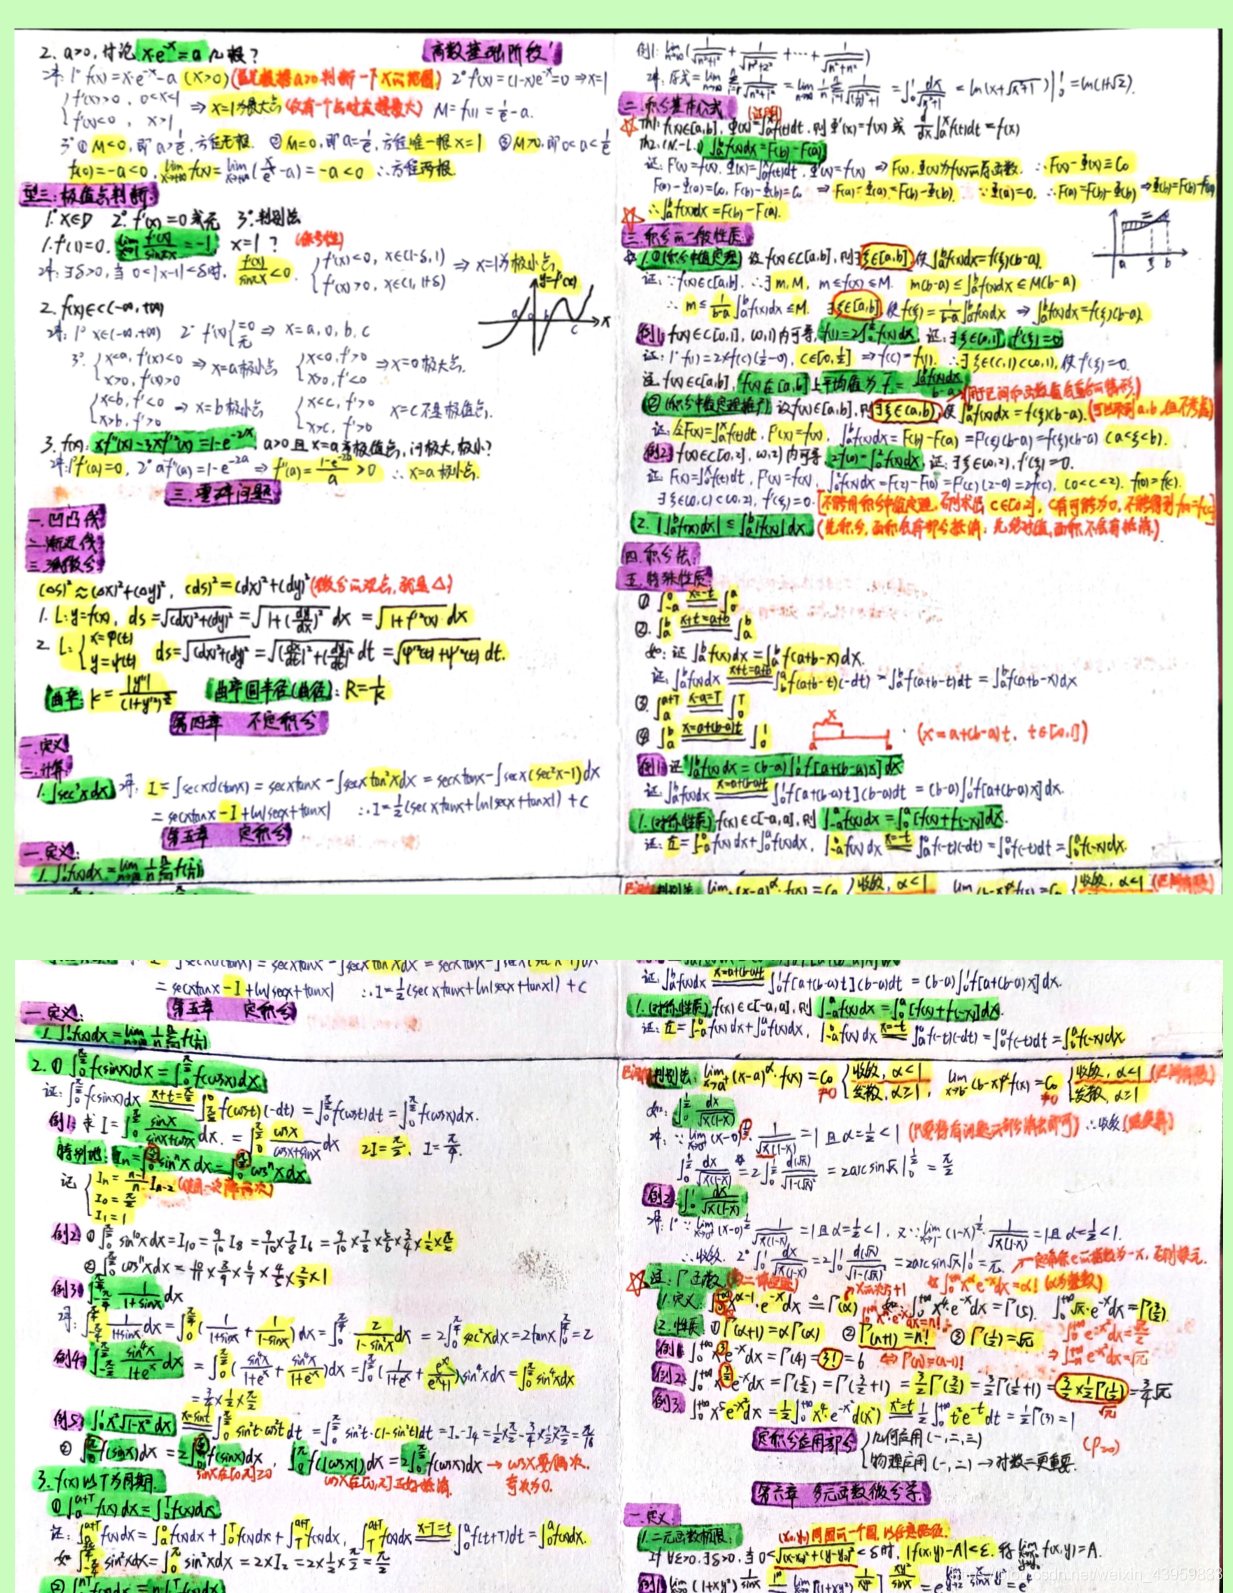 2. a>0, 讨论 x·e^{-x}=a 几根?
高数基础阶段!
1° f(x)=x·e^{-x}-a (x>0) 2° f'(x)=(1-x)e^{-x}=0 ⇒ x=1
{f'(x)>0, 0<x<1
f'(x)<0, x>1 ⇒ x=1为极大点 M=f(1)=1/e-a.
3° ① M<0, 即 a>1/e, 方程无根. ② M=0, 即 a=1/e, 方程唯一根 x=1 ③ M>0, 即 0<a<1/e
f(0)=-a<0, lim_{x→+∞} f(x)=lim_{x→+∞}(x/e^x-a)=-a<0 ∴方程两根.
型三: 极值点判断.
1° x∈D 2° f'(x)=0或无 3° 判别法
1. f'(1)=0, lim_{x→1} f'(x)/sinπx=-1, x=1? (保号性)
∃δ>0, 当 0<|x-1|<δ时, f'(x)/sinπx<0. {f'(x)<0, x∈(1-δ,1)
f'(x)>0, x∈(1,1+δ) ⇒ x=1为极小点
2. f(x)∈C(-∞,+∞)
y=f'(x)
1° x∈(-∞,+∞) 2° f'(x){=0 无 ⇒ x=a,0,b,c
3° {x<a, f'(x)<0
x>a, f'(x)>0 ⇒ x=a极小点 {x<0, f'>0
x>0, f'<0 ⇒ x=0极大点.
{x<b, f'<0
x>b, f'>0 ⇒ x=b极小点 {x<c, f'>0
x>c, f'>0 x=c不是极值点.
3. f(x): xf''(x)-3xf'²(x)=1-e^{-2x}, a>0且x=a为极值点, 问极大,极小?
1° f'(a)=0, 2° af''(a)=1-e^{-2a} ⇒ f''(a)=(1-e^{-2a})/a>0 ∴x=a极小点.
三. 重难问题
一. 凹凸性
二. 渐近线
三. 弧微分
(Δs)²≈(Δx)²+(Δy)², (ds)²=(dx)²+(dy)² (微分的观点, 就是Δ)
1. L: y=f(x), ds=√((dx)²+(dy)²)=√(1+(dy/dx)²) dx=√(1+f'²(x)) dx
2. L: {x=φ(t)
y=ψ(t) ds=√((dx)²+(dy)²)=√((dx/dt)²+(dy/dt)²) dt=√(φ'²(t)+ψ'²(t)) dt.
曲率: k=|y''|/(1+y'²)^{3/2} 曲率圆半径(曲径): R=1/k
第四章 不定积分
一. 定义
二. 计算
1. ∫sec³xdx I=∫secxd(tanx)=secxtanx-∫secxtan²xdx=secxtanx-∫secx(sec²x-1)dx
=secxtanx-I+ln|secx+tanx| ∴I=1/2(secxtanx+ln|secx+tanx|)+C
第五章 定积分
一. 定义:
1. ∫_0^1 f(x)dx=lim_{n→∞} 1/n Σ_{i=1}^n f(i/n)
例1: lim_{n→∞}(1/√(n²+1²)+1/√(n²+2²)+…+1/√(n²+n²))
原式=lim_{n→∞} Σ_{i=1}^n 1/√(n²+i²)=lim_{n→∞} 1/n Σ_{i=1}^n 1/√((i/n)²+1)=∫_0^1 dx/√(x²+1)=ln(x+√(x²+1))|_0^1=ln(1+√2).
二. 积分基本公式 (证明)
Th1: f(x)∈C[a,b], Φ(x)=∫_a^x f(t)dt, 则 Φ'(x)=f(x) 或 d/dx∫_a^x f(t)dt=f(x)
Th2: (N-L) ∫_a^b f(x)dx=F(b)-F(a)
证: F'(x)=f(x), Φ(x)=∫_a^x f(t)dt, Φ'(x)=f(x) ⇒ F(x), Φ(x)为f(x)的原函数. ∴F(x)-Φ(x)≡C₀
F(a)-Φ(a)=C₀, F(b)-Φ(b)=C₀ ⇒ F(a)-Φ(a)=F(b)-Φ(b). ∵Φ(a)=0. ∴F(a)=F(b)-Φ(b) ⇒Φ(b)=F(b)-F(a)
∴∫_a^b f(x)dx=F(b)-F(a).
三. 积分的一般性质
1. ①(积分中值定理) 设f(x)∈C[a,b], 则∃ξ∈[a,b], 使∫_a^b f(x)dx=f(ξ)(b-a).
a ξ b
证: ∵f(x)∈C[a,b]. ∴∃m,M, m≤f(x)≤M. m(b-a)≤∫_a^b f(x)dx≤M(b-a)
∴m≤1/(b-a)∫_a^b f(x)dx≤M. ∃ξ∈[a,b], 使f(ξ)=1/(b-a)∫_a^b f(x)dx ⇒∫_a^b f(x)dx=f(ξ)(b-a).
例1: f(x)∈C[0,1], (0,1)内可导, f(1)=2∫_0^{1/2} f(x)dx, 证: ∃ξ∈(0,1), f'(ξ)=0.
证: 1° f(1)=2×f(c)(1/2-0), c∈[0,1/2] ⇒f(c)=f(1). ∴∃ξ∈(c,1)⊂(0,1), 使f'(ξ)=0.
注: f(x)∈C[a,b], f(x)在[a,b]上平均值为 f̄=∫_a^b f(x)dx/(b-a)
②(积分中值定理推广) 设f(x)∈[a,b], 则∃ξ∈(a,b), 使∫_a^b f(x)dx=f(ξ)(b-a).
证: 令F(x)=∫_a^x f(t)dt, F'(x)=f(x), ∫_a^b f(x)dx=F(b)-F(a)=F'(ξ)(b-a)=f(ξ)(b-a) (a<ξ<b).
例2: f(x)∈C[0,2], (0,2)内可导, 2f(0)=∫_0^2 f(x)dx, 证: ∃ξ∈(0,2), f'(ξ)=0.
证: F(x)=∫_0^x f(t)dt, F'(x)=f(x), ∫_0^2 f(x)dx=F(2)-F(0)=F'(c)(2-0)=2f(c), (0<c<2). f(0)=f(c).
∃ξ∈(0,c)⊂(0,2), f'(ξ)=0. [不能用积分中值定理, 否则求出c∈[0,2], c有可能为0, 不能得到f(0)=f(c)]
2. |∫_a^b f(x)dx|≤∫_a^b |f(x)|dx. (先积分, 面积会有部分抵消; 先绝对值, 面积不会有抵消.)
四. 积分法:
五. 特殊性质
① ∫_{-a}^0 x=-t ∫_0^a
② ∫_a^b x+t=a+b ∫_a^b
如: 证∫_a^b f(x)dx=∫_a^b f(a+b-x)dx.
证: ∫_a^b f(x)dx x+t=a+b ∫_b^a f(a+b-t)(-dt)=∫_a^b f(a+b-t)dt=∫_a^b f(a+b-x)dx
③ ∫_a^{a+T} x-a=T ∫_0^T
④ ∫_a^b x=a+(b-a)t ∫_0^1
x a b (x=a+(b-a)t, t∈[0,1])
例1: 证∫_a^b f(x)dx=(b-a)∫_0^1 f[a+(b-a)x]dx
证: ∫_a^b f(x)dx x=a+(b-a)t ∫_0^1 f[a+(b-a)t](b-a)dt=(b-a)∫_0^1 f[a+(b-a)x]dx.
1. (对称性质) f(x)∈C[-a,a], 则∫_{-a}^a f(x)dx=∫_0^a [f(x)+f(-x)]dx.
证: 左=∫_{-a}^0 f(x)dx+∫_0^a f(x)dx, ∫_{-a}^0 f(x)dx x=-t ∫_a^0 f(-t)(-dt)=∫_0^a f(-t)dt=∫_0^a f(-x)dx.
=secxtanx-I+ln|secx+tanx| ∴I=1/2(secxtanx+ln|secx+tanx|)+C
第五章 定积分
一. 定义:
1. ∫_0^1 f(x)dx=lim_{n→∞} 1/n Σ_{i=1}^n f(i/n)
2. ① ∫_0^{π/2} f(sinx)dx=∫_0^{π/2} f(cosx)dx.
证: ∫_0^{π/2} f(sinx)dx x+t=π/2 ∫_{π/2}^0 f(cost)(-dt)=∫_0^{π/2} f(cost)dt=∫_0^{π/2} f(cosx)dx.
例1: 求 I=∫_0^{π/2} sinx/(sinx+cosx) dx. =∫_0^{π/2} cosx/(cosx+sinx) dx 2I=π/2, I=π/4.
特别地: I_n=∫_0^{π/2} sin^n xdx=∫_0^{π/2} cos^n xdx
记 {I_n=(n-1)/n I_{n-2}
I_0=π/2
I_1=1
例2: ① ∫_0^{π/2} sin^{10}xdx=I_{10}=9/10 I_8=9/10×7/8 I_6=9/10×7/8×5/6×3/4×1/2×π/2
② ∫_0^{π/2} cos^{11}xdx=10/11×8/9×6/7×4/5×2/3×1
例3: ∫_{-π/4}^{π/4} 1/(1+sinx) dx
∫_{-π/4}^{π/4} 1/(1+sinx) dx=∫_0^{π/4}(1/(1+sinx)+1/(1-sinx))dx=∫_0^{π/4} 2/(1-sin²x) dx=2∫_0^{π/4} sec²xdx=2tanx|_0^{π/4}=2
例4: ∫_{-π/2}^{π/2} sin⁴x/(1+e^x) dx =∫_0^{π/2}(sin⁴x/(1+e^x)+sin⁴x/(1+e^{-x}))dx=∫_0^{π/2}(1/(1+e^x)+e^x/(e^x+1))sin⁴xdx=∫_0^{π/2} sin⁴xdx
=3/4×1/2×π/2
例5: ∫_0^1 x²√(1-x²)dx x=sint ∫_0^{π/2} sin²t·cos²tdt=∫_0^{π/2} sin²t·(1-sin²t)dt=I_2-I_4=1/2×π/2-3/4×1/2×π/2=π/16
② ∫_0^π f(sinx)dx=2∫_0^{π/2} f(sinx)dx, ∫_0^π f(|cosx|)dx=2∫_0^{π/2} f(cosx)dx → cosx要偶次.
sinx在[0,π]≥0 奇次为0.
3. f(x)以T为周期.
① ∫_a^{a+T} f(x)dx=∫_0^T f(x)dx.
证: ∫_a^{a+T} f(x)dx=∫_a^0 f(x)dx+∫_0^T f(x)dx+∫_T^{a+T} f(x)dx, ∫_T^{a+T} f(x)dx x-T=t ∫_0^a f(t+T)dt=∫_0^a f(x)dx.
如 sin²xdx=∫_0^π sin²xdx=2×I_2=2×1/2×π/2=π/2
② ∫_0^{nT} f(x)dx=n∫_0^T f(x)dx
证: ∫_a^b f(x)dx x=a+(b-a)t ∫_0^1 f[a+(b-a)t](b-a)dt=(b-a)∫_0^1 f[a+(b-a)x]dx.
1. (对称性质) f(x)∈C[-a,a], 则∫_{-a}^a f(x)dx=∫_0^a [f(x)+f(-x)]dx.
证: 左=∫_{-a}^0 f(x)dx+∫_0^a f(x)dx, ∫_{-a}^0 f(x)dx x=-t ∫_a^0 f(-t)(-dt)=∫_0^a f(-t)dt=∫_0^a f(-x)dx
判别法: lim_{x→a⁺}(x-a)^α·f(x)=C₀≠0 {收敛, α<1
发散, α≥1, lim_{x→b⁻}(b-x)^α f(x)=C₀≠0 {收敛, α<1
发散, α≥1
如: ∫_0^{1/2} dx/√(x(1-x))
∵lim_{x→0⁺}(x-0)^{1/2} 1/√(x(1-x))=1且α=1/2<1 ∴收敛
∫_0^{1/2} dx/√(x(1-x))=2∫_0^{1/2} d(√x)/√(1-(√x)²)=2arcsin√x|_0^{1/2}=π/2
例2: ∫_0^1 dx/√(x(1-x))
1° ∵lim_{x→0⁺}(x-0)^{1/2} 1/√(x(1-x))=1且α=1/2<1, 又∵lim_{x→1⁻}(1-x)^{1/2}·1/√(x(1-x))=1且α=1/2<1.
∴收敛. 2° ∫_0^1 dx/√(x(1-x))=2∫_0^1 d(√x)/√(1-(√x)²)=2arcsin√x|_0^1=π.
注: Γ函数
1. 定义: ∫_0^{+∞} x^{α-1}·e^{-x}dx≜Γ(α) 如∫_0^{+∞} x⁴·e^{-x}dx=Γ(5). ∫_0^{+∞} √x·e^{-x}dx=Γ(3/2).
2. 性质: ① Γ(α+1)=αΓ(α) ② Γ(n+1)=n! ③ Γ(1/2)=√π
例1: ∫_0^{+∞} x³e^{-x}dx=Γ(4)=3!=6 ⇔ Γ(n)=(n-1)!
例2: ∫_0^{+∞} x^{3/2}e^{-x}dx=Γ(5/2)=Γ(3/2+1)=3/2Γ(3/2)=3/2Γ(1/2+1)=3/2×1/2Γ(1/2)=3/4√π
例3: ∫_0^{+∞} x⁵e^{-x²}dx=1/2∫_0^{+∞} x⁴e^{-x²}d(x²) x²=t 1/2∫_0^{+∞} t²e^{-t}dt=1/2Γ(3)=1
定积分应用部分 {几何应用(一,二,三)
物理应用(一,二)→对数二更重要.
第六章 多元函数微分学.
一. 定义
1. 二元函数极限:
若∀ε>0, ∃δ>0, 当0<√((x-x₀)²+(y-y₀)²)<δ时, |f(x,y)-A|<ε. 称lim f(x,y)=A.